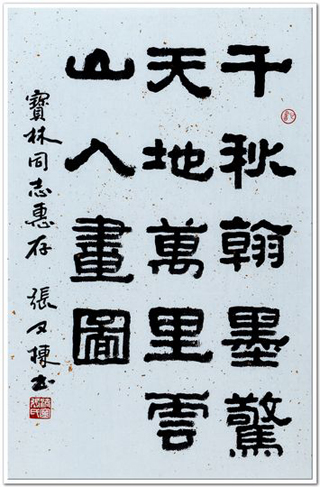 千秋翰墨驚
天地萬里雲
山入畫圖
寶林同志惠存 張又棟书